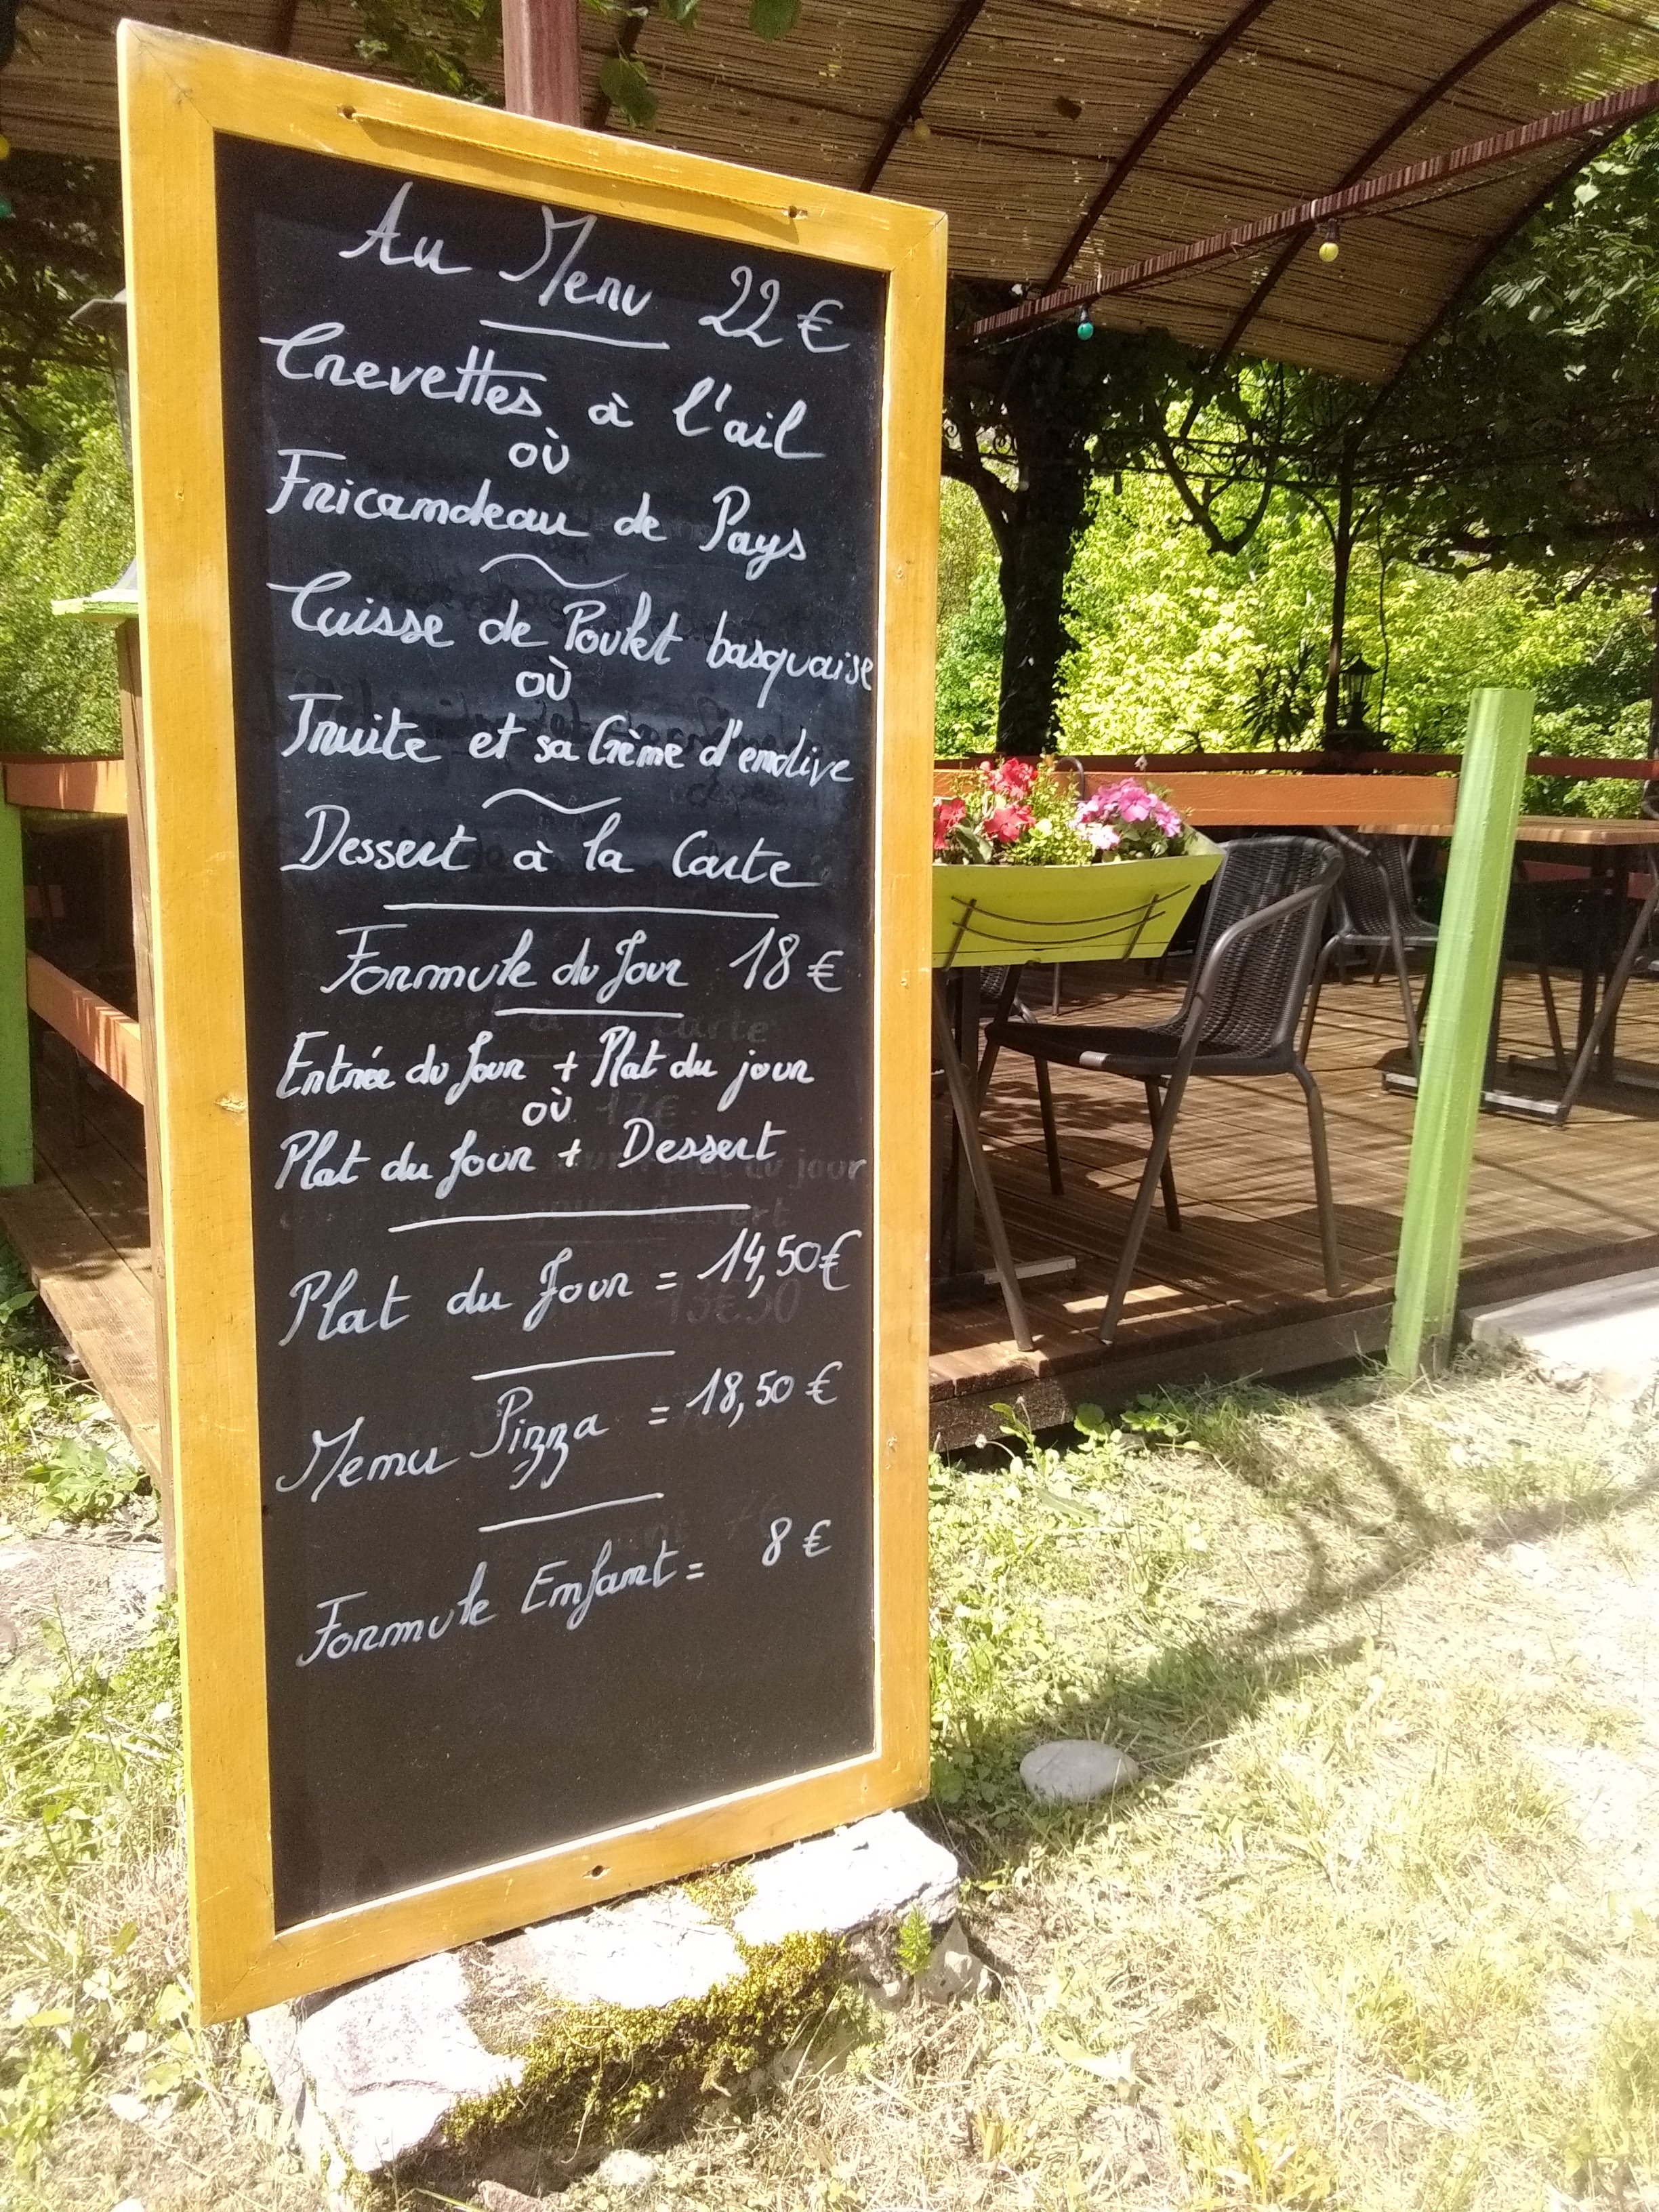 Au Menu 22 €
Crevettes à l'ail
où
Fricandeau de Pays
Cuisse de Poulet basquaise
où
Truite et sa Crème d'endive
Dessert à la Carte
Formule du Jour 18 €
Entrée du Jour + Plat du jour
où
Plat du Jour + Dessert
Plat du Jour = 14,50 €
Menu Pizza = 18,50 €
Formule Enfant = 8 €